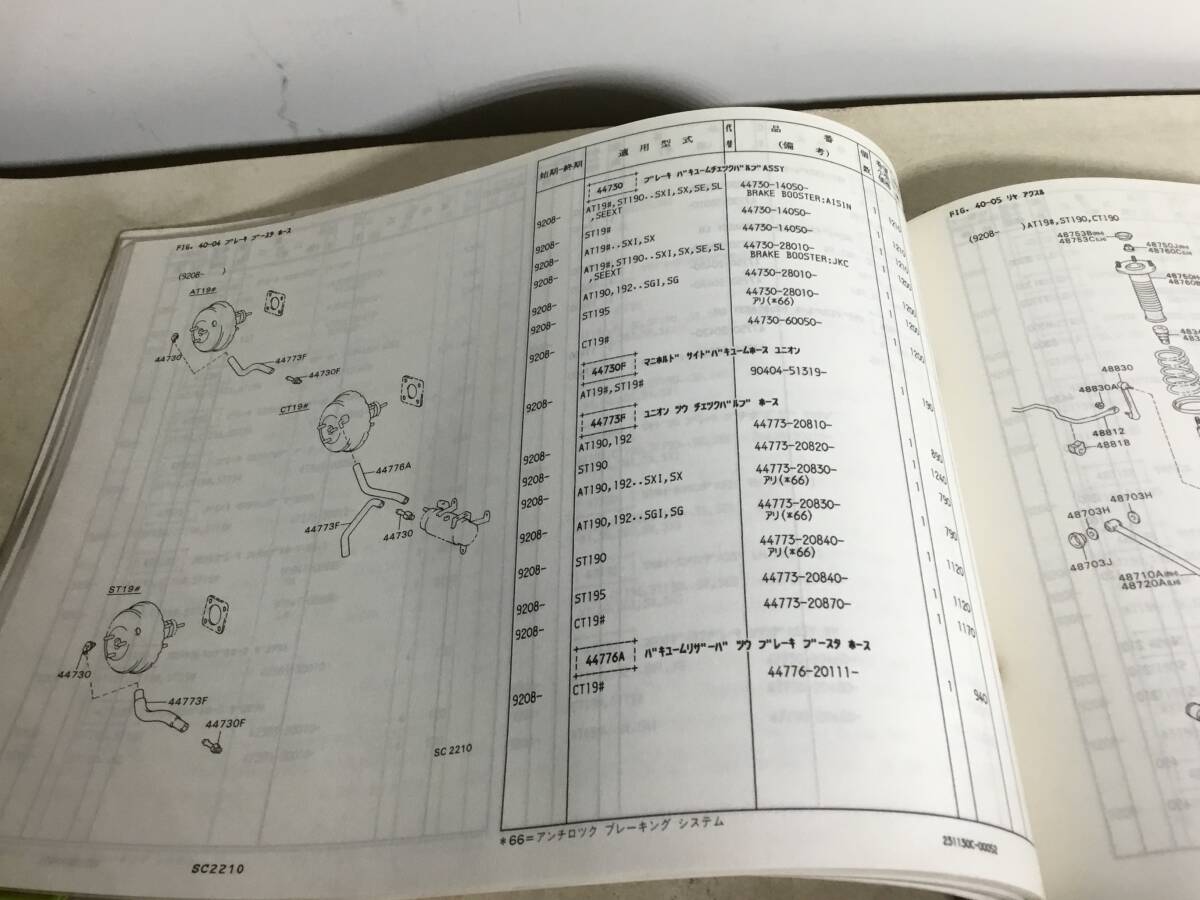 FIG. 40-04 ブレーキ ブースタ ホース
(9208-      )
AT19#
44730
44773F
44730F
CT19#
44776A
44773F
44730
ST19#
44730
44773F
44730F
SC 2210
SC2210
始期-終期 適用型式 代替 品番(備考) 個数
44730 ブレーキ バキュームチェックバルブASSY
9208- AT19#,ST190..SXI,SX,SE,SL 44730-14050- 1 1210
,SEEXT BRAKE BOOSTER:AISIN
9208- ST19# 44730-14050- 1 1210
9208- AT19#..SXI,SX 44730-14050- 1 1210
9208- AT19#,ST190..SXI,SX,SE,SL 44730-28010- 1 1200
,SEEXT BRAKE BOOSTER:JKC
9208- AT190,192..SGI,SG 44730-28010- 1 1200
9208- ST195 44730-28010- 1 1200
アリ(*66)
9208- CT19# 44730-60050- 1 1200
44730F マニホルド サイドバキュームホース ユニオン
9208- AT19#,ST19# 90404-51319- 1 190
44773F ユニオン ツウ チェックバルブ ホース
9208- AT190,192 44773-20810- 1 890
9208- ST190 44773-20820- 1 1240
9208- AT190,192..SXI,SX 44773-20830- 1 790
アリ(*66)
9208- AT190,192..SGI,SG 44773-20830- 1 790
アリ(*66)
9208- ST190 44773-20840- 1 1120
アリ(*66)
9208- ST195 44773-20840- 1 1120
9208- CT19# 44773-20870- 1 1170
44776A バキュームリザーバ ツウ ブレーキ ブースタ ホース
9208- CT19# 44776-20111- 1 940
*66=アンチロック ブレーキング システム
231130C-00052
FIG. 40-05 リヤ アクスル
(9208-      )AT19#,ST190,CT190
48753B(RH)
48753C(LH)
48750J(RH)
48760C(LH)
48750H
48760B
48830
48830A
48812
48818
48703H
48703H
48703J
48710A(RH)
48720A(LH)